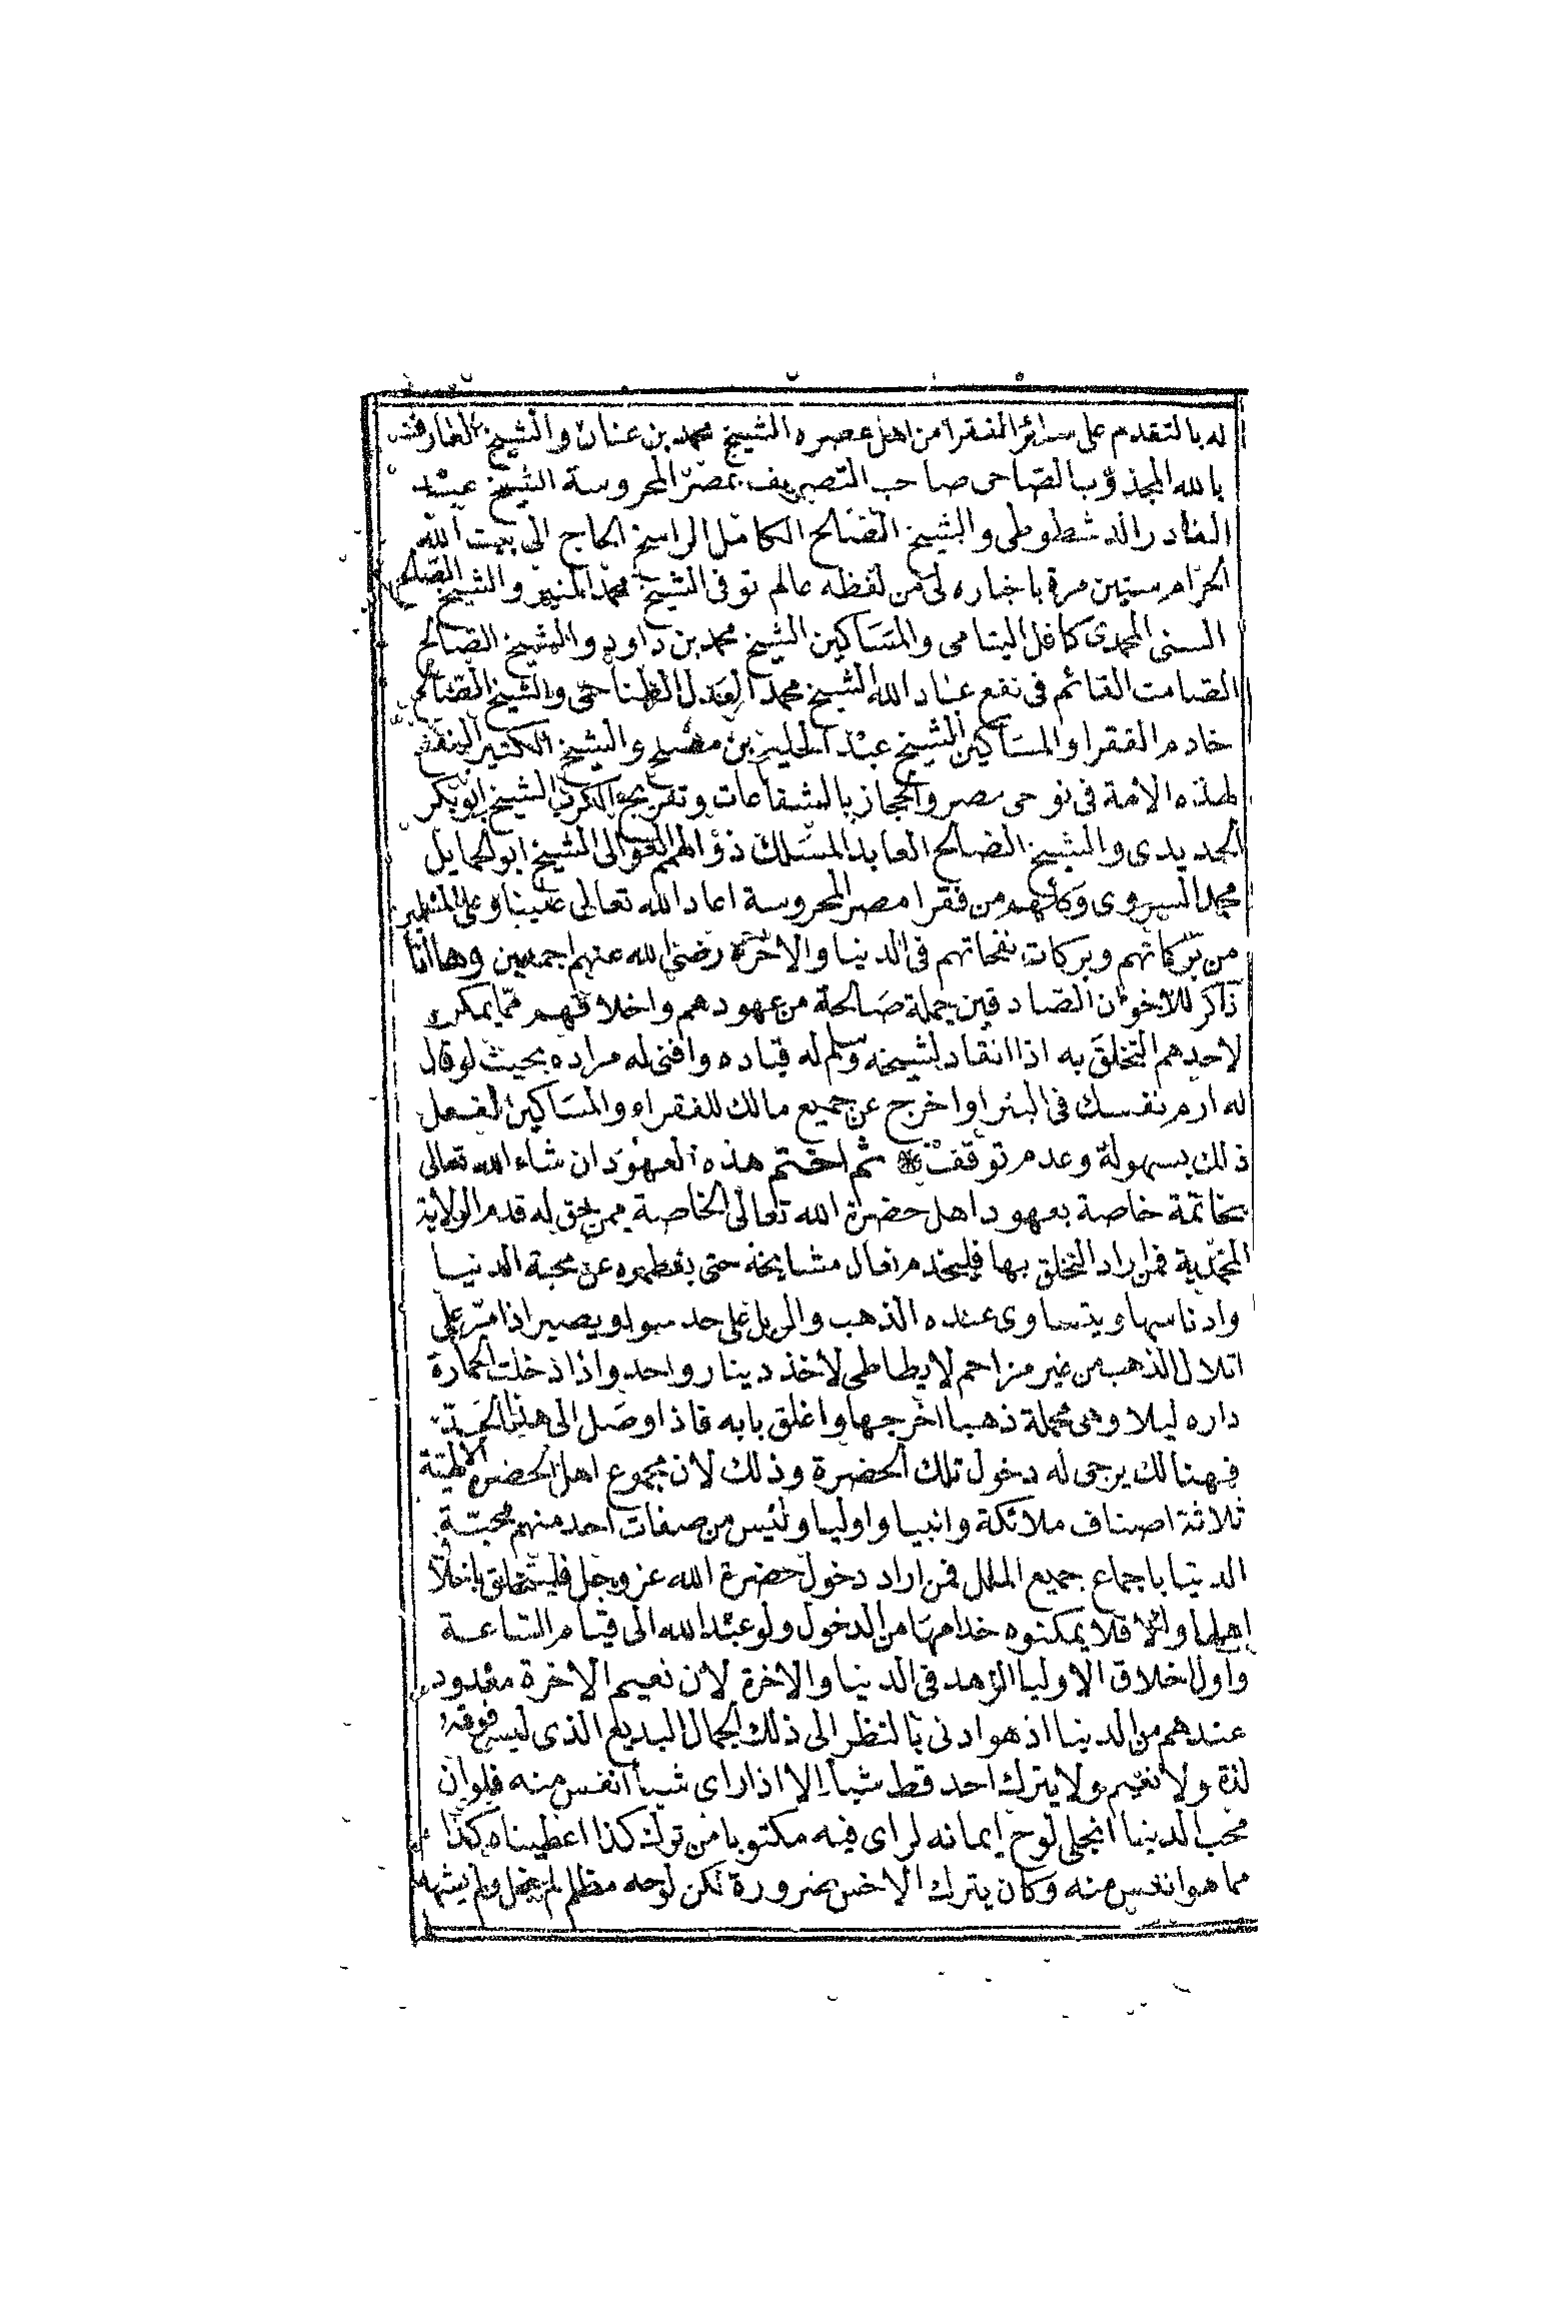 له بالتقدم على سائر الفقرا من اهل عصره الشيخ محمد بن عنان والشيخ العارف
بالله المجذوب الصاحى صاحب التصريف بمصر المحروسة الشيخ عبد
القادر الدشطوطى والشيخ الصالح الكامل الراسخ الحاج الى بيت الله
الحرام ستين مرة باخباره لى من لفظه عام توفى الشيخ محمد المنير والشيخ الصالح
السنى المحمدى كافل اليتامى والمساكين الشيخ محمد بن داود والشيخ الصالح
الصامت القائم فى نفع عباد الله الشيخ محمد العدل الطناحى والشيخ الصالح
خادم الفقرا والمساكين الشيخ عبد الحليم بن مصلح والشيخ الكثير النفع
لهذه الامة فى نوحى مصر والحجاز بالشفاعات وتفريج الكرب الشيخ ابو بكر
الحديدى والشيخ الصالح العابد المسلك ذو الهمم العوالى الشيخ ابو الحمايل
محمد السروى وكلهم من فقرا مصر المحروسة اعاد الله تعالى علينا وعلى المسلمين
من بركاتهم وبركات نفحاتهم فى الدنيا والاخرة رضى الله عنهم اجمعين وها انا
ذاكر للاخوان الصادقين جملة صالحة من عهودهم واخلاقهم مما يمكن
لاحدهم التخلق به اذا انقاد لشيخه وسلم له قياده وافنى له مراده بحيث لو قال
له ارم نفسك فى البئر او اخرج عن جميع مالك للفقراء والمساكين لفعل
ذلك بسهولة وعدم توقف ثم اختم هذه العهود ان شاء الله تعالى
بخاتمة خاصة بعهود اهل حضرة الله تعالى الخاصة ممن يحق له قدم الولاية
المحمدية فمن اراد التخلق بها فليخدم نعال مشايخه حتى يفطموه عن محبة الدنيا
وادناسها ويتساوى عنده الذهب والزبل على حد سوا ويصير اذا مر على
اتلال الذهب من غير مزاحم لا يطاطى لاخذ دينار واحد واذا دخلت الحمارة
داره ليلا وهى محملة ذهبا اخرجها واغلق بابه فاذا وصل الى هذا الحد
فهنالك يرجى له دخول تلك الحضرة وذلك لان مجموع اهل الحضرة الالهية
ثلاثة اصناف ملائكة وانبيا واوليا وليس من صفات احد منهم محبة
الدنيا باجماع جميع الملل فمن اراد دخول حضرة الله عز وجل فليتخلق باخلاق
اهلها والا فلا يمكنوه خدامها من الدخول ولو عبد الله الى قيام الساعة
واول اخلاق الاوليا الزهد فى الدنيا والاخرة لان نعيم الاخرة معدود
عندهم من الدنيا اذ هو ادنى بالنظر الى ذلك الجمال البديع الذى ليس فوقه
لذة ولا نعيم ولا يترك احد قط شيأ الا اذا راى شيأ انفس منه فلو ان
محب الدنيا انجلى لوح ايمانه لراى فيه مكتوبا من ترك كذا اعطيناه كذا
مما هو انفس منه وكان يترك الاخس بضرورة لكن لوحه مظلم لم ينجل ولم يشهد